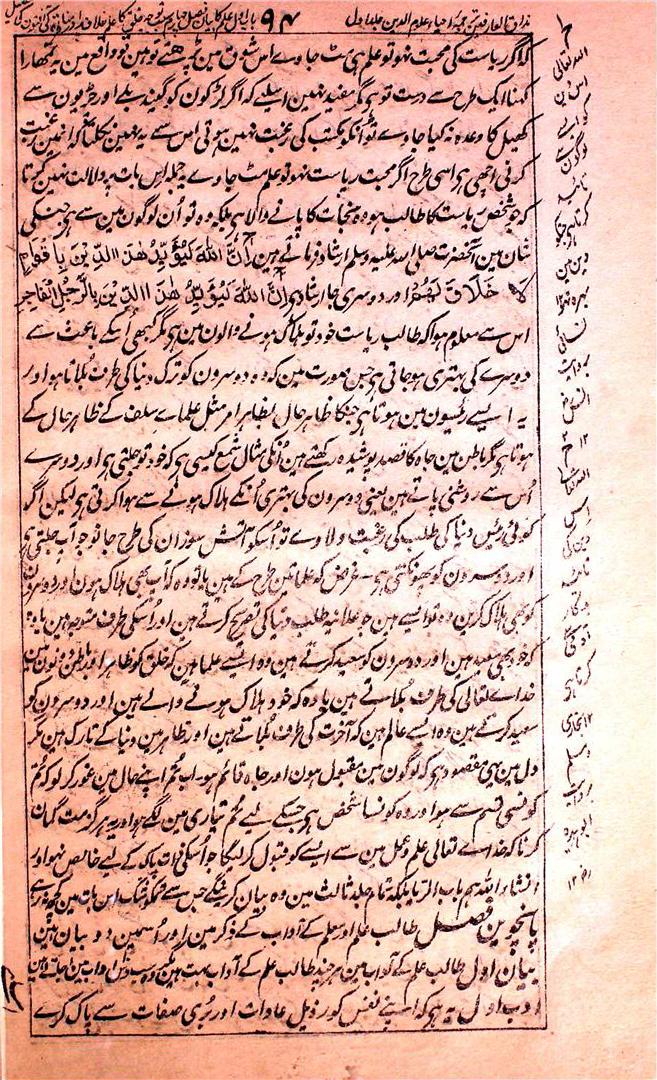 مذاق العارفین ترجمہ احیاء علوم الدین جلد اول ۹۴ باب اول علم کا بیان فصل چہارم
کہ اگر ریاست کی محبت نہو تو علم ہی مٹ جاوے اس شوق مین پڑھتے تو ہین تو واقع مین یہ تمھارا
کہنا ایک طرح سے درست تو ہی مگر مفید نہین اسلیے کہ اگر لڑکون کو گیند بلے اور چڑیون سے
کھیل کا وعدہ نہ کیا جاوے تو انکو مکتب کی رغبت نہین ہوتی اس سے یہ نہین نکلتا کہ انمین رغبت
کرنی اچھی ہو اسی طرح اگر محبت ریاست نہو تو علم مٹ جاوے یہ جملہ اس بات پر دلالت نہین کرتا
کہ جو شخص ریاست کا طالب ہو وہ منجات کا پانے والا ہی بلکہ وہ تو اُن لوگون مین سے ہی جنکی
شان مین آنحضرت صلی اللہ علیہ وسلم ارشاد فرماتے ہین اِنَّ اللّٰہَ لَیُؤَیِّدُ ھٰذَا الدِّیْنَ بِاَقْوَامٍ
لَا خَلَاقَ لَہُمْ اور دوسری جا ارشاد ہی اِنَّ اللّٰہَ لَیُؤَیِّدُ ھٰذَا الدِّیْنَ بِالرَّجُلِ الْفَاجِرِ
اس سے معلوم ہوا کہ طالب ریاست خود تو ہلاک ہونے والون مین ہی مگر کبھی اُسکے باعث سے
دوسرے کی بہتری ہو جاتی ہی جس صورت مین کہ وہ دوسرون کو ترک دنیا کی طرف بلاتا ہو اور
یہ ایسے رئیسون مین ہوتا ہی جنکا ظاہر حال بظاہر امر مثل علماے سلف کے ظاہر حال کے
ہوتا ہی مگر باطن مین جاہ کا قصد پوشیدہ رکھتے ہین اُنکی مثال شمع کیسی ہی کہ خود تو جلتی ہی اور دوسرے
اُس سے روشنی پاتے ہین یعنی دوسرون کی بہتری اُنکے ہلاک ہونے سے ہوا کرتی ہی لیکن اگر
کوئی رئیس دنیا کی طلب کی رغبت دلاوے تو اُسکو آتش سوزان کی طرح جانو جو آپ جلتی ہی
اور دوسرون کو پھونکتی ہی۔ غرض کہ علما تین طرح کے ہین یا تو وہ کہ آپ بھی ہلاک ہون اور دوسرون
کو بھی ہلاک کرین وہ تو ایسے ہین جو علانیہ طلب دنیا کی تصریح کرتے ہین اور اُسکی طرف متوجہ ہین یا وہ
کہ خود بھی سعید ہین اور دوسرون کو سعید کرتے ہین وہ ایسے علما ہین کہ خلق کو ظاہر اور باطن دونون مین
خداے تعالی کی طرف بلاتے ہین یا وہ کہ خود ہلاک ہونے والے ہین اور دوسرون کو
سعید کرتے ہین وہ ایسے عالم ہین کہ آخرت کی طرف بلاتے ہین اور ظاہر مین دنیا کے تارک ہین مگر
دل مین یہی مقصود ہی کہ لوگون مین مقبول ہون اور جاہ قائم ہو۔ اب تم اپنے حال مین غور کر لو کہ تم
کونسی قسم سے ہو اور وہ کونسا شخص ہی جسکے لیے تم تیاری مین لگے ہو اور یہ ہرگز مت گمان
کرنا کہ خداے تعالی علم و عمل مین سے ایسے کو قبول کر لیگا جو اُسکی ذات پاک کے لیے خالص نہو اور
انشاء اللہ ہم باب الریا بلکہ تمام جلد ثالث مین وہ بیان کرینگے جس سے شک اس بات مین کچھ نہ رہے
پانچوین فصل طالب علم اور معلم کے آداب کے ذکر مین اور اُسمین دو بیان ہین
بیان اول طالب علم کے آداب مین ہر چند طالب علم کے آداب بہت ہین مگر سب دس ادب مین آ جاتے ہین
ادب اول یہ ہی کہ اپنے نفس کو رذیل عادات اور بُری صفات سے پاک کرے
اللہ تعالی
اس دین
کو ایسے
لوگون سے
تائید
کرتا ہی جنکو
دین مین
بہرہ نہو
نسائی
بروایت
انس رض
۱۲
اللہ تعالی
اس
دین کی
تائید
بدکار
آدمی سے
کرتا ہی
۱۲ بخاری
و مسلم
بروایت
ابو ہریرہ
رض ۱۲